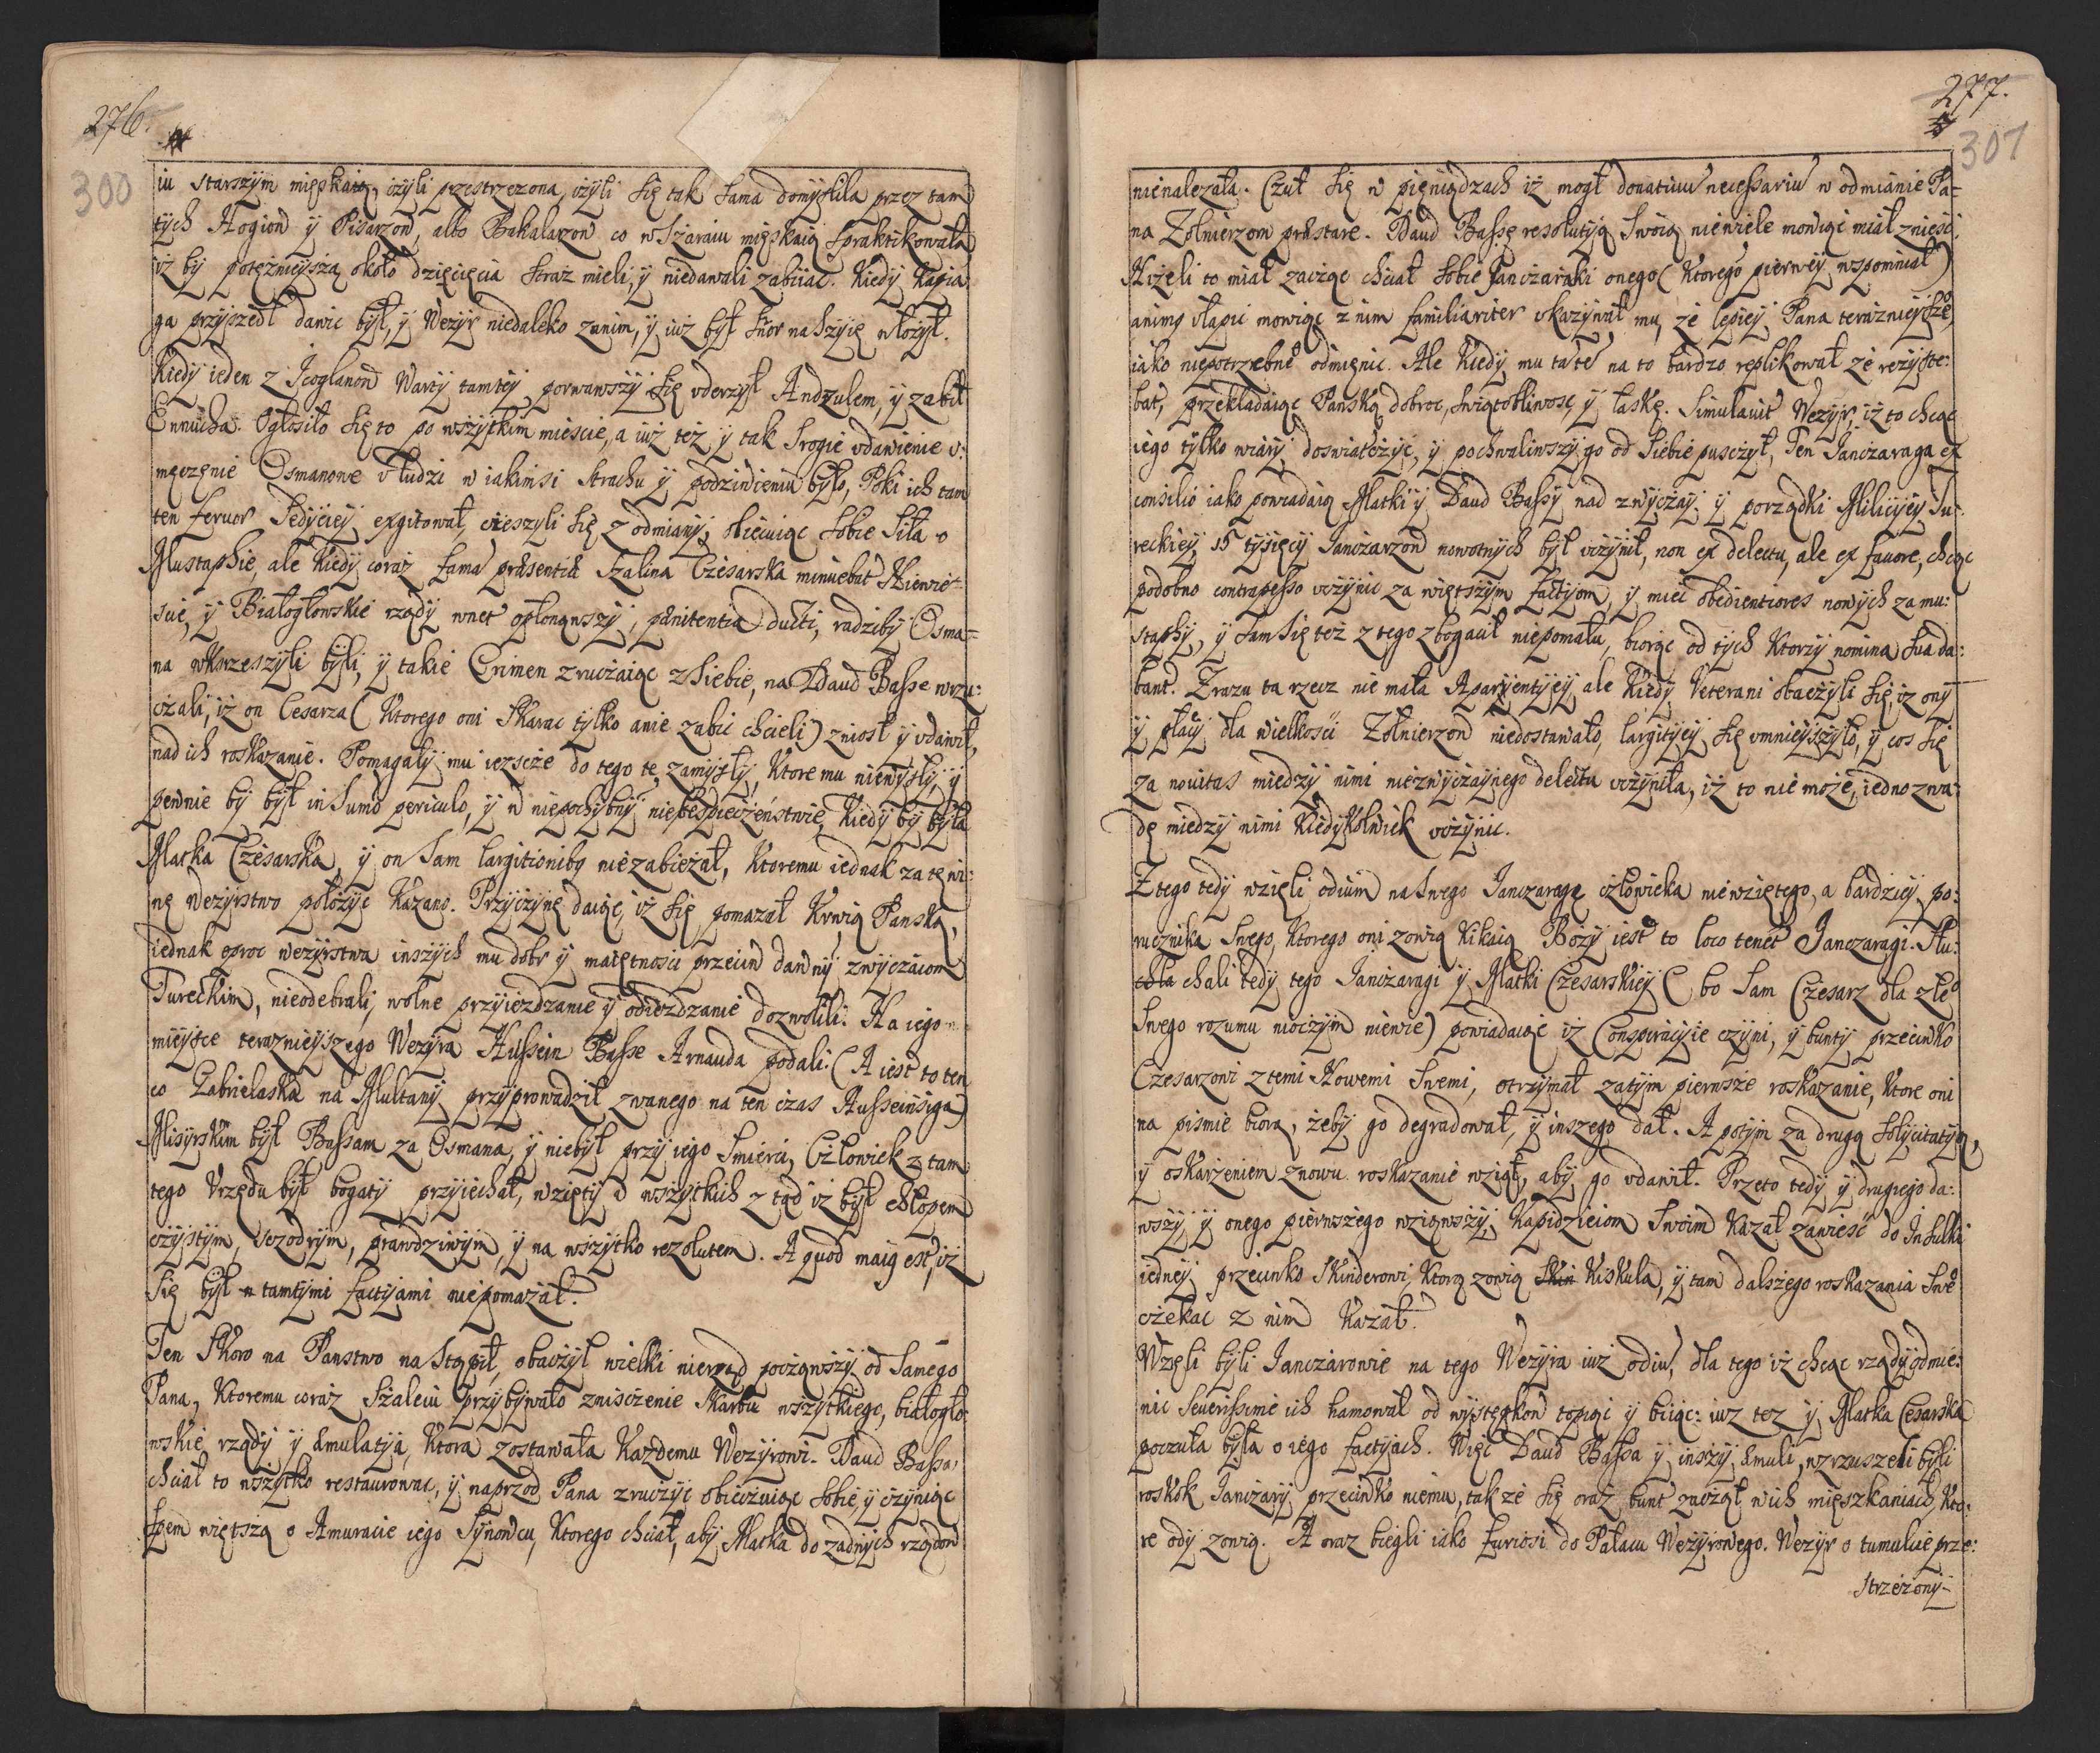 276.
300
iu starszym mięskaią, czyli przestrzezona, czyli się tak sama domyslila przez tam
tych Hogiow y Pisarzow, albo Bakalarzow co w Szaraiu mięskaią spraktikowała
iz by potęznieyszą około dzięcięcia straz mieli, y niedawali zabiiac. Kiedy Kapia
ga przyszedł dawic był, y Wezyr niedaleko zanim, y iuz był snor na szyię włozył.
Kiedy ieden z Icoglanow Warty tamtey porwawszy się vderzył Andzulem, y zabił
Ennucha. Ogłosiło się to po wszytkim miescie, a iuz tez y tak srogie vdawienie v:
męczęnie Osmanowe v ludzi w iakimsi strachu y podziwieniu było, Poki ich tam
ten feruor Sedyciey exgitował, cieszyli się z odmiany, obiecuiąc sobie siła o
Mustaphie, ale kiedy coraz fama præsentia szalina Czesarska minuebat Niewie-
scie, y Białogłowskie rządy wnet opłonąwszy, pænitentia ducti, radziby Osma-
na wkrzeszyli byli, y takie Crimen zrucaiąc z siebie, na Daud Basse wrzu:
czali, iz on Cesarza (ktorego oni skarac tylko anie zabic chcieli) zniosł y vdawił,
nad ich roskazanie. Pomagały mu iezscze do tego te zamysły, ktore mu niewysły, y
pewnie by był in sumo periculo, y w niepochybny niebespieczęnstwie, kiedy by była
Matka Czesarska, y on sam largitionibq niezabiezał, ktoremu iednak za tę wi:
nę Wezyrstwo połozyc kazano. Przyczynę daiąc, iz się pomazał Krwią Panską,
iednak oproc wezyrstwa inszych mu dobr y maiętnosci przeciw dawny zwyczaiom
Tureckim, nieodebrali, wolne przyiezdzanie y odiezdzanie dozwolili. Na iego
mieysce teraznieyszego Wezyra Hussein Basse Arnauda podali. (A iest to ten
co Gabrielaska na Multany przyprowadził zwanego na ten czas Husseinsiga)
Misyrskim był Bassam za Osmana, y niebył przy iego smierci, Człowiek z tam
tego Vrzędu był bogaty przyiechał, wzięty v wszytkich z tąd iz był chłopem
czystym, sczodrym, prawdziwym, y na wszytko rezolutem. A quod maig est, iz
się był w tamtymi factyami niepomazał.
Ten skoro na Panstwo nastąpił, obaczył wielki nierząd począwszy od samego
Pana, ktoremu coraz szaleiu przybywało zniscżenie skarbu wszytkiego, białogło-
wskie rządy y æmulatya, ktora zostawała kazdemu Wezyrowi. Daud Bassa
chciał to wszytko restaurowac, y naprzod Pana zruczyc obiecuiąc sobie, y czyniąc
spem więtszą o Amuracie iego synowcu, ktorego chciał, aby Matka do zadnych rządow
277.
301
nienalezała. Czuł się w pięniądzach iz mogł donatiuu necessariu w odmianie Pa-
na Zołnierzom præstare. Daud Bassę resolutyą swoią niewiele mowiąc miał zniesc.
Nizeli to miał zacząc chciał sobie Janczaraki onego (ktorego pierwey wspomniał)
animq vłapic mowiąc z nim familiariter vkazywał mu, ze lepiey Pana teraznieysze,
iako niepotrzebne odmięnic. Ale kiedy mu taste na to bardzo replikował ze reżyste:
bat, przekładaiąc Panską dobroc, swiątobliwosc, y łaskę. Simulauit Wezyr, iz to chcąc
iego tylko wiary doswiatczyc, y pochwaliwszy go od siebie pusczył, Ten Janczaraga ex
consilio iako powiadaią Matki y Daud Bassy nad zwyczay y porządki Miliciyey Tu-
reckiey 15 tysięcy Janczarzow nowotnych był vczynił, non ex delectu, ale ex fauore, chcąc
podobno contrapesso vczynic za więtszym factyom, y miec obedientiores nowych za mu:
staphy, y sam się tez z tego zbogacił niepomału, biorąc od tych ktorzy nomina sua da:
bant. Zrazu ta rzecz nie mała Aparyentyey, ale kiedy Veterani obaczyli się, iz ony
y płacy dla wielkosci Zołnierzow niedostawało, largityey się vmnieyszyło, y cos się
za nouitas miedzy nimi niezwyczaynego delectu vczyniła, iz to nie moze, iedno zwa-
dę miedzy nimi kiedykolwiek vczynic.
Z tego tedy wzięli odium na swego Janczaragę człowieka niewziętego, a bardziey po:
rucznika swego, ktorego oni zowią Kikaią Bozy iest to loco tenet Janczaragi. Słu:
chali tedy tego Janczaragi y Matki Czesarskiey (bo sam Czesarz dla złe
swego rozumu nioczym niewie) powiadaiąc iz Conspiracyie czyni, y bunty przeciwko
Czesarzowi z temi Nowemi swemi, otrzymał zatym pierwsze roskazanie, ktore oni
na pismie biorą, żeby go degradował, y inszego dał. A potym za drugą sollycitatyą,
y oskarzeniem znowu roskazanie wziął, aby go vdawił. Przeto tedy y drugiego da:
wszy, y onego pierwszego wziąwszy Kapidzieiom swoim kazał zawiesc do Insulki
iedney przeciwko Skinderowi, ktorą zowią Kiskula, y tam dalszego roskazania swe
czekac z nim kazał.
Wzęli byli Janczarowie na tego Wezyra iuz odiu, dla tego iz chcąc rządy odmie:
nic seuerissime ich hamował od występkow topiąc y biiąc: iuz tez y Matka Cesarska
poczuła była o iego factyach. Więc Daud Bassa y inszy æmuli, wzruszeli byli
roskok Janczary przeciwko niemu, tak ze się oraz bunt zaczął w ich mięszkaniach, kto:
re ody zowią. A oraz biegli iako furiosi do Pałacu Wezyrowego. Wezyr o tumulcie prze:
strzezony